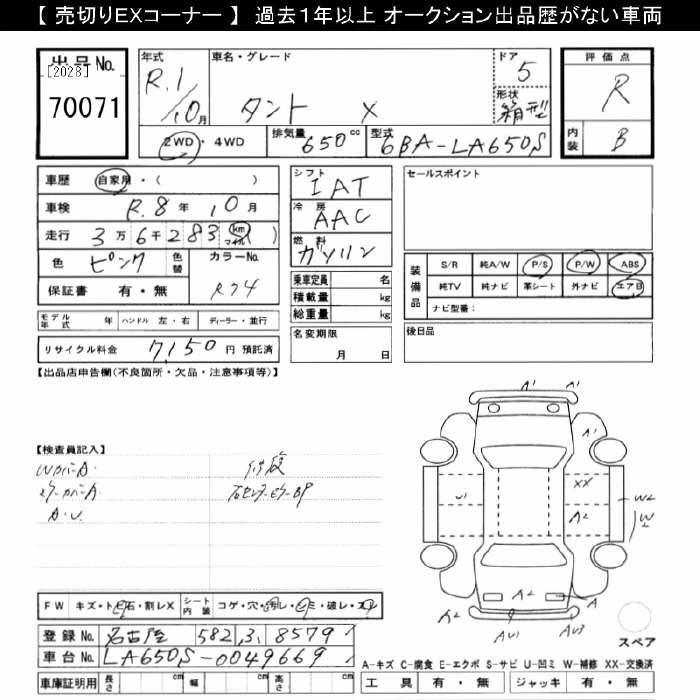 【 売切りEXコーナー 】 過去１年以上 オークション出品歴がない車両
出品No.
[2028]
70071
年式
R.1/10月
車名・グレード
タント X
ドア
5
形状
箱型
評価点
R
内装
B
2WD・4WD
排気量 650cc
型式 6BA-LA650S
車歴 自家用・( )
車検 R.8年10月
走行 3万6千283 km マイル )
色 ピンク 色替
カラーNo. R74
保証書 有・無
モデル年式 年 ハンドル 左・右 ディーラー・並行
リサイクル料金 7,150円 預託済
シフト
IAT
冷房
AAC
燃料
ガソリン
乗車定員 名
積載量 kg
総重量 kg
名変期限
月 日
セールスポイント
装備品
S/R 純A/W P/S P/W ABS
純TV 純ナビ 革シート 外ナビ エアB
ナビ型番：
後日品
【出品店申告欄(不良箇所・欠品・注意事項等)】
【検査員記入】
Wカバー-A.
ミラーカバー-A
A.U.
修復
右センターピラーBP
A1 A1
A1
U1 XX W2
A2 W
A2 A
A2 AU1 AU3
スペア
FW キズ・トビ石・割レX シート内装 コゲ・穴・汚レ・シミ・破レ・スレ
登録No. 名古屋 582 ,3, 8579
車台No. LA650S-0049669
車庫証明用 長さ cm 幅 cm 高さ cm
A-キズ C-腐食 E-エクボ S-サビ U-凹ミ W-補修 XX-交換済
工具 有・無 ジャッキ 有・無